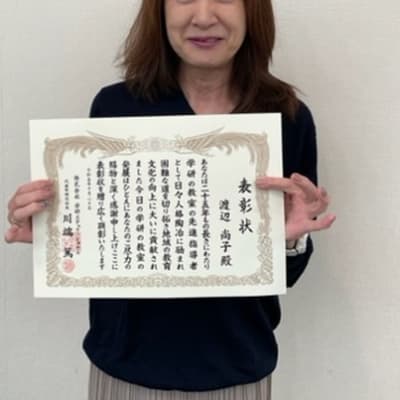 表彰状
渡辺 尚子殿
あなたは二十五年もの長きにわたり
学研の教室の先進指導者
として日々人格陶冶に励まれ
困難な道を切り拓き地域の教育
文化の向上に大いに貢献され
ました今日の学研の教室の
発展はひとえにあなたのご尽力の
賜物と深く感謝申し上げここに
表彰状を贈り広く顕彰いたします
株式会社 学研
代表取締役社長 川端 篤